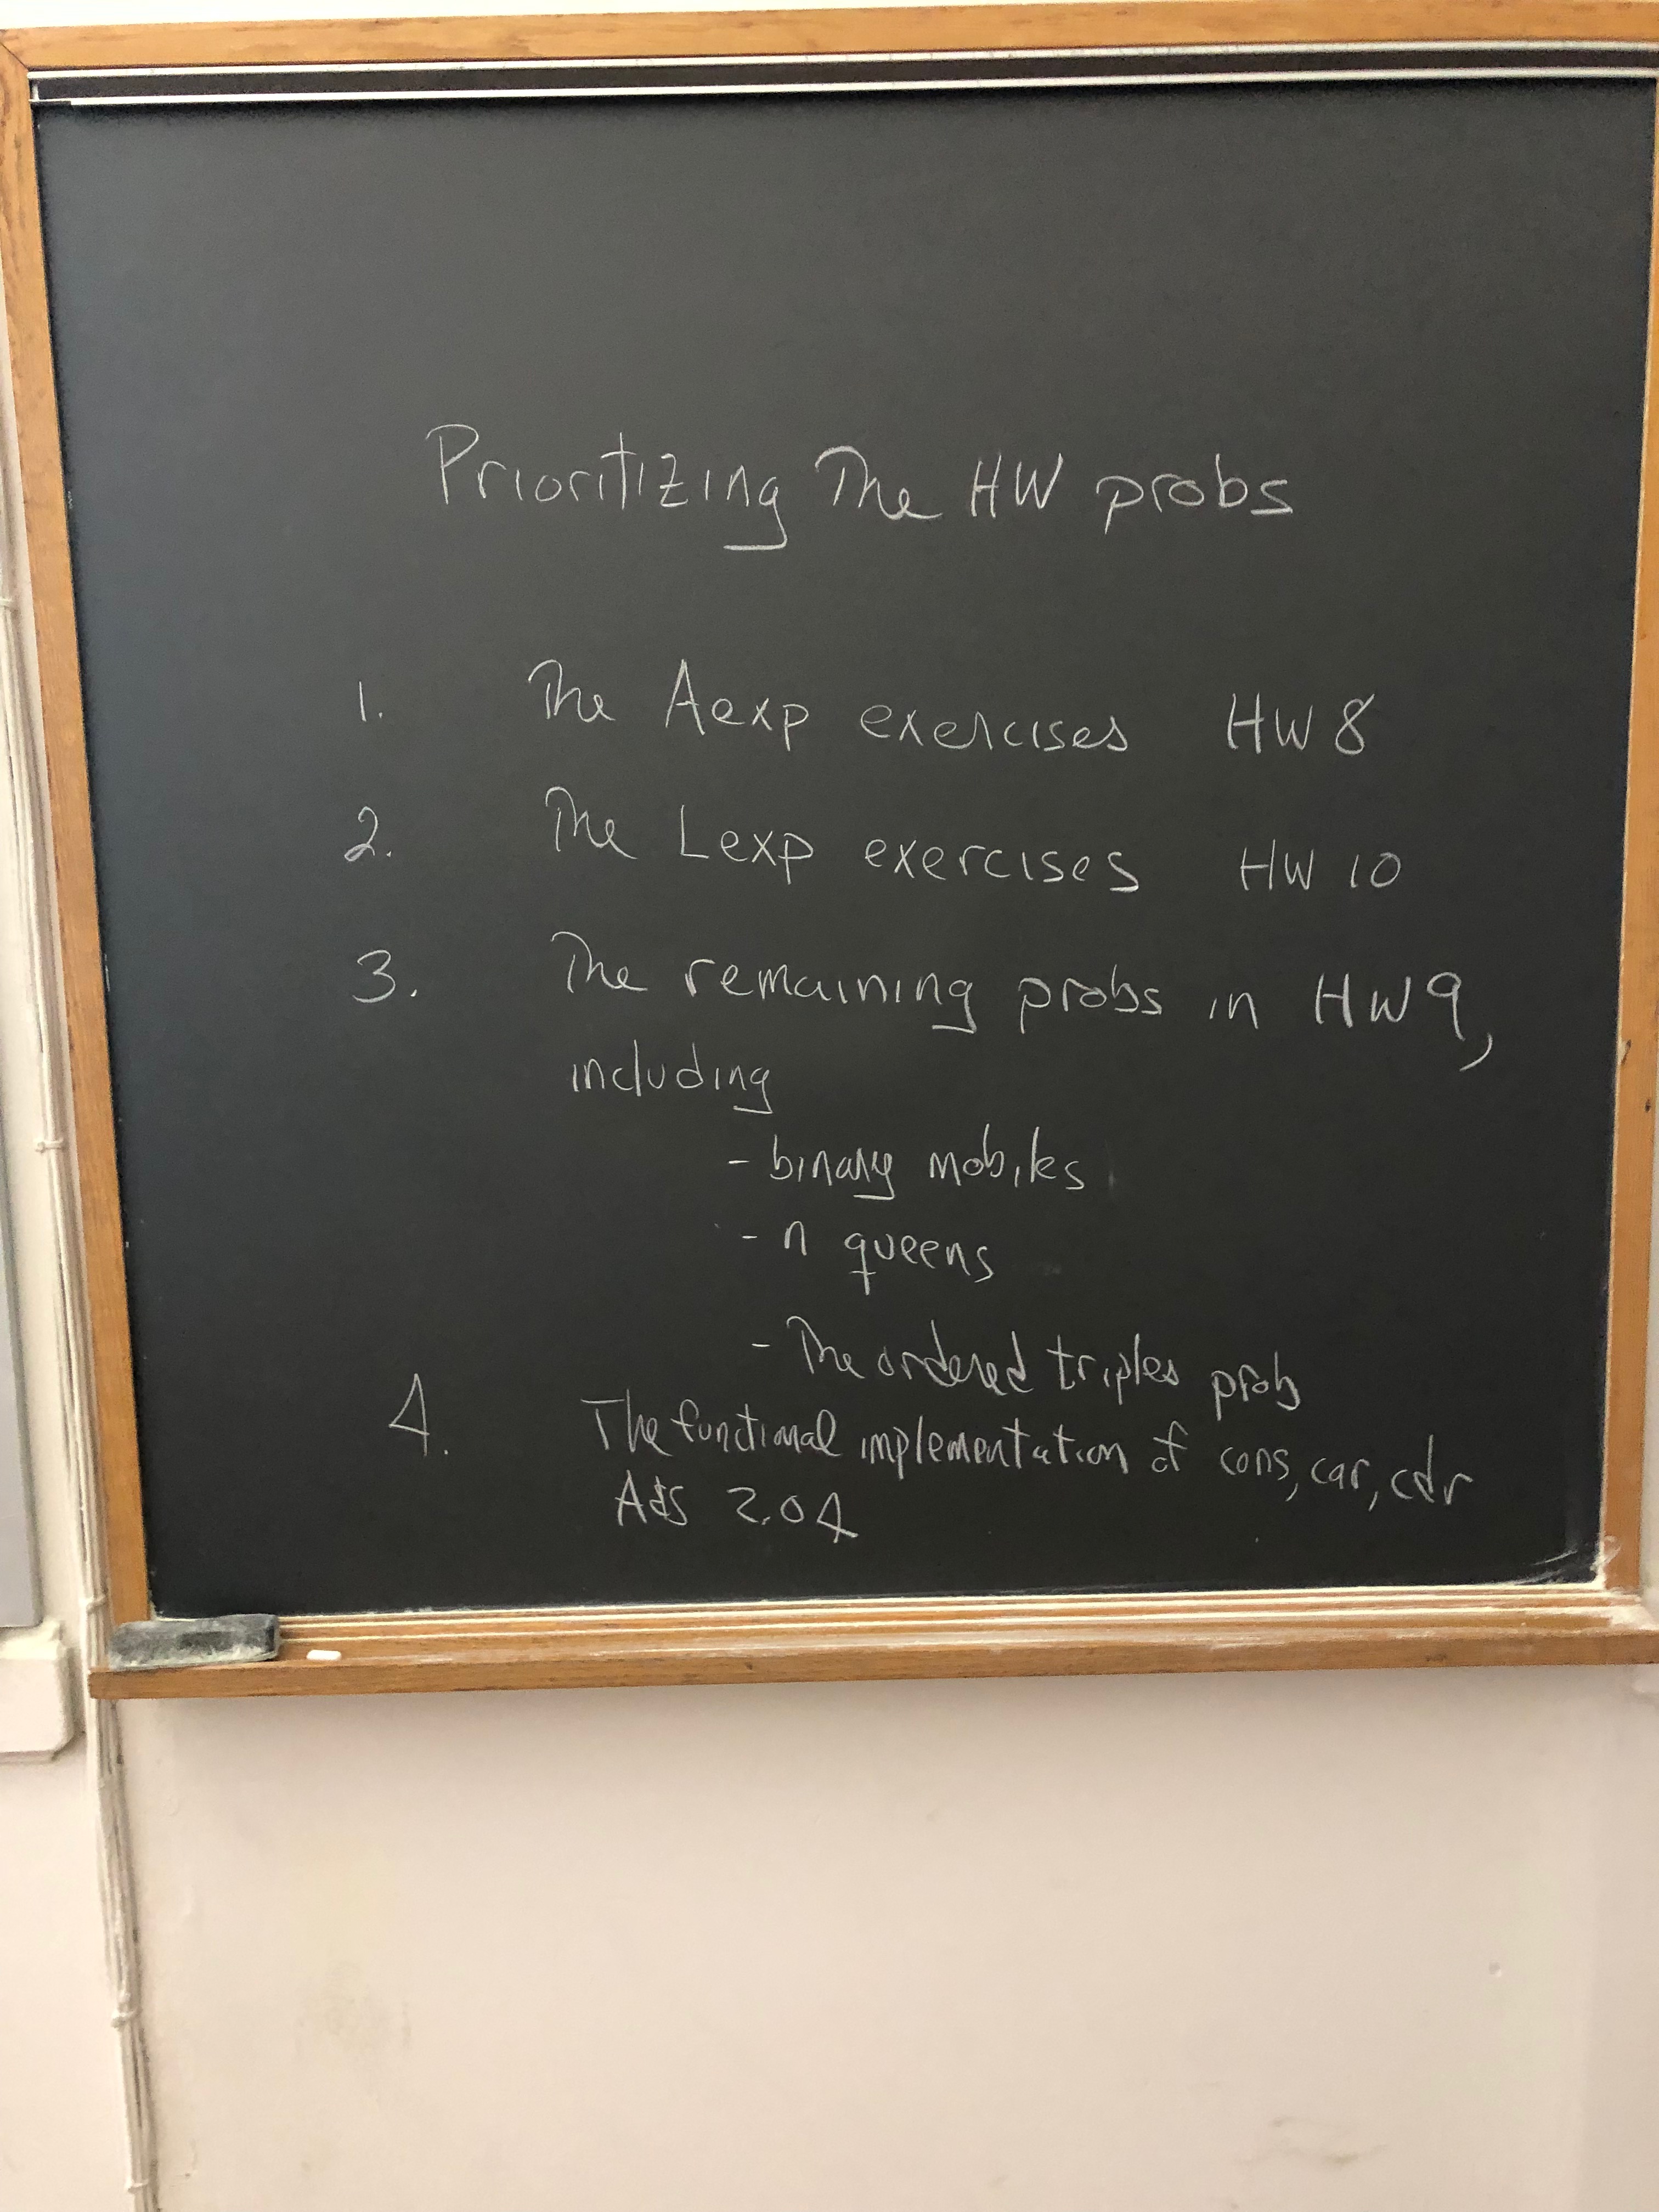 Prioritizing The HW probs
1. The Aexp exercises HW 8
2. The Lexp exercises HW 10
3. The remaining probs in HW 9,
including
- binary mobiles
- n queens
- The ordered triples prob
4. The functional implementation of cons, car, cdr
A&S 2.04